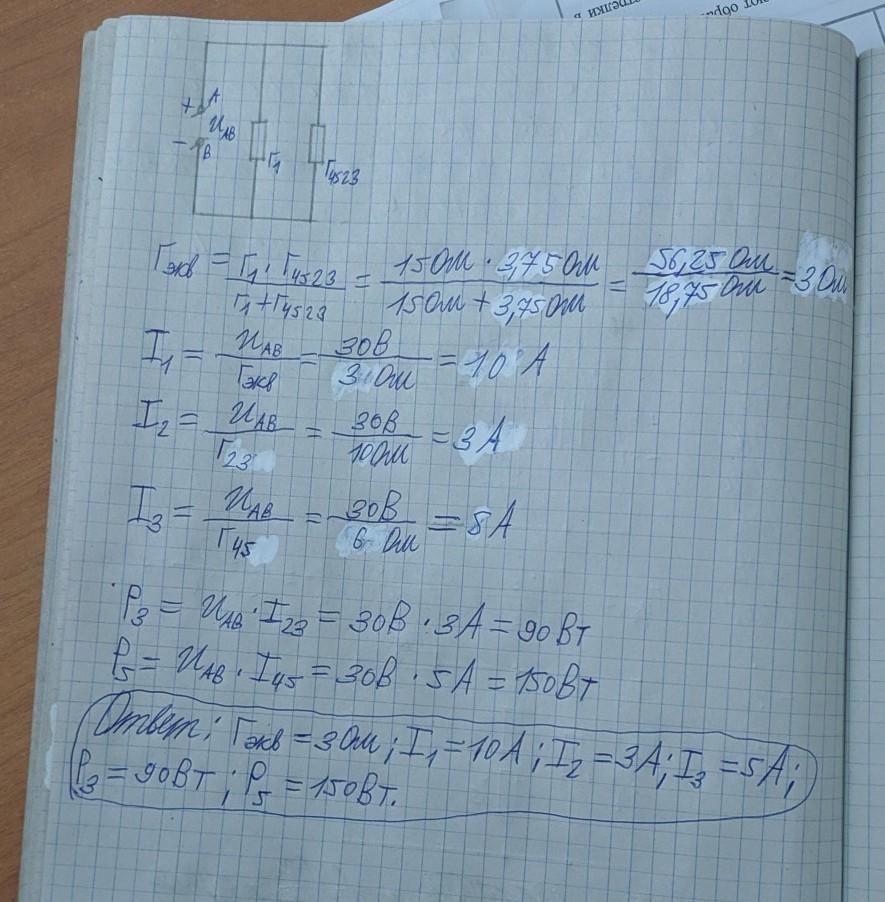 ют обра
стрелки в
+ A
U_AB
- B
r_1
r_4523
r_экв = r_1 · r_4523 / r_1 + r_4523 = 15Ом · 3,75Ом / 15Ом + 3,75Ом = 56,25Ом / 18,75Ом = 3Ом
I_1 = U_AB / r_экв = 30В / 3 Ом = 10 А
I_2 = U_AB / r_23 = 30В / 10Ом = 3А
I_3 = U_AB / r_45 = 30В / 6 Ом = 5А
P_3 = U_AB · I_23 = 30В · 3А = 90Вт
P_5 = U_AB · I_45 = 30В · 5А = 150Вт
Ответ: r_экв = 3Ом; I_1 = 10А; I_2 = 3А; I_3 = 5А;
P_3 = 90Вт; P_5 = 150Вт.